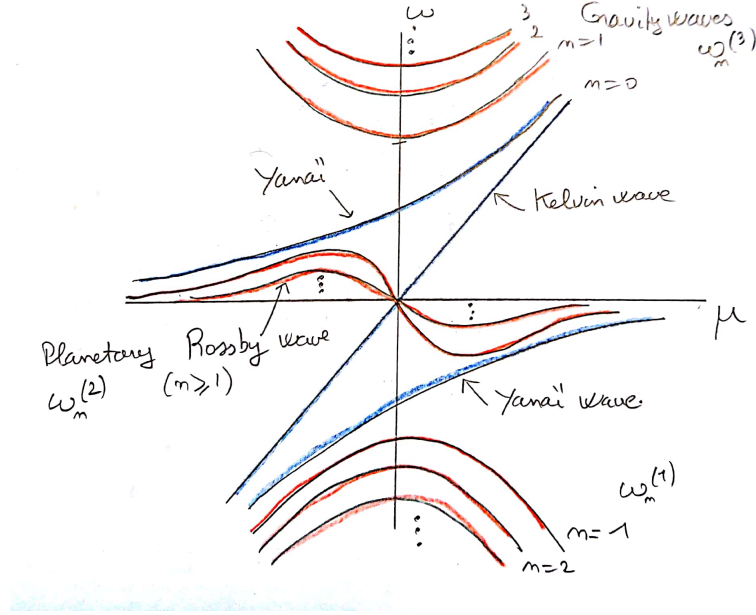 ω
Gravity waves
ω_n^(3)
3
2
n=1
n=0
Yanaï
Kelvin wave
μ
Planetary Rossby wave
ω_n^(2) (n≥1)
Yanaï wave.
ω_n^(1)
n=1
n=2